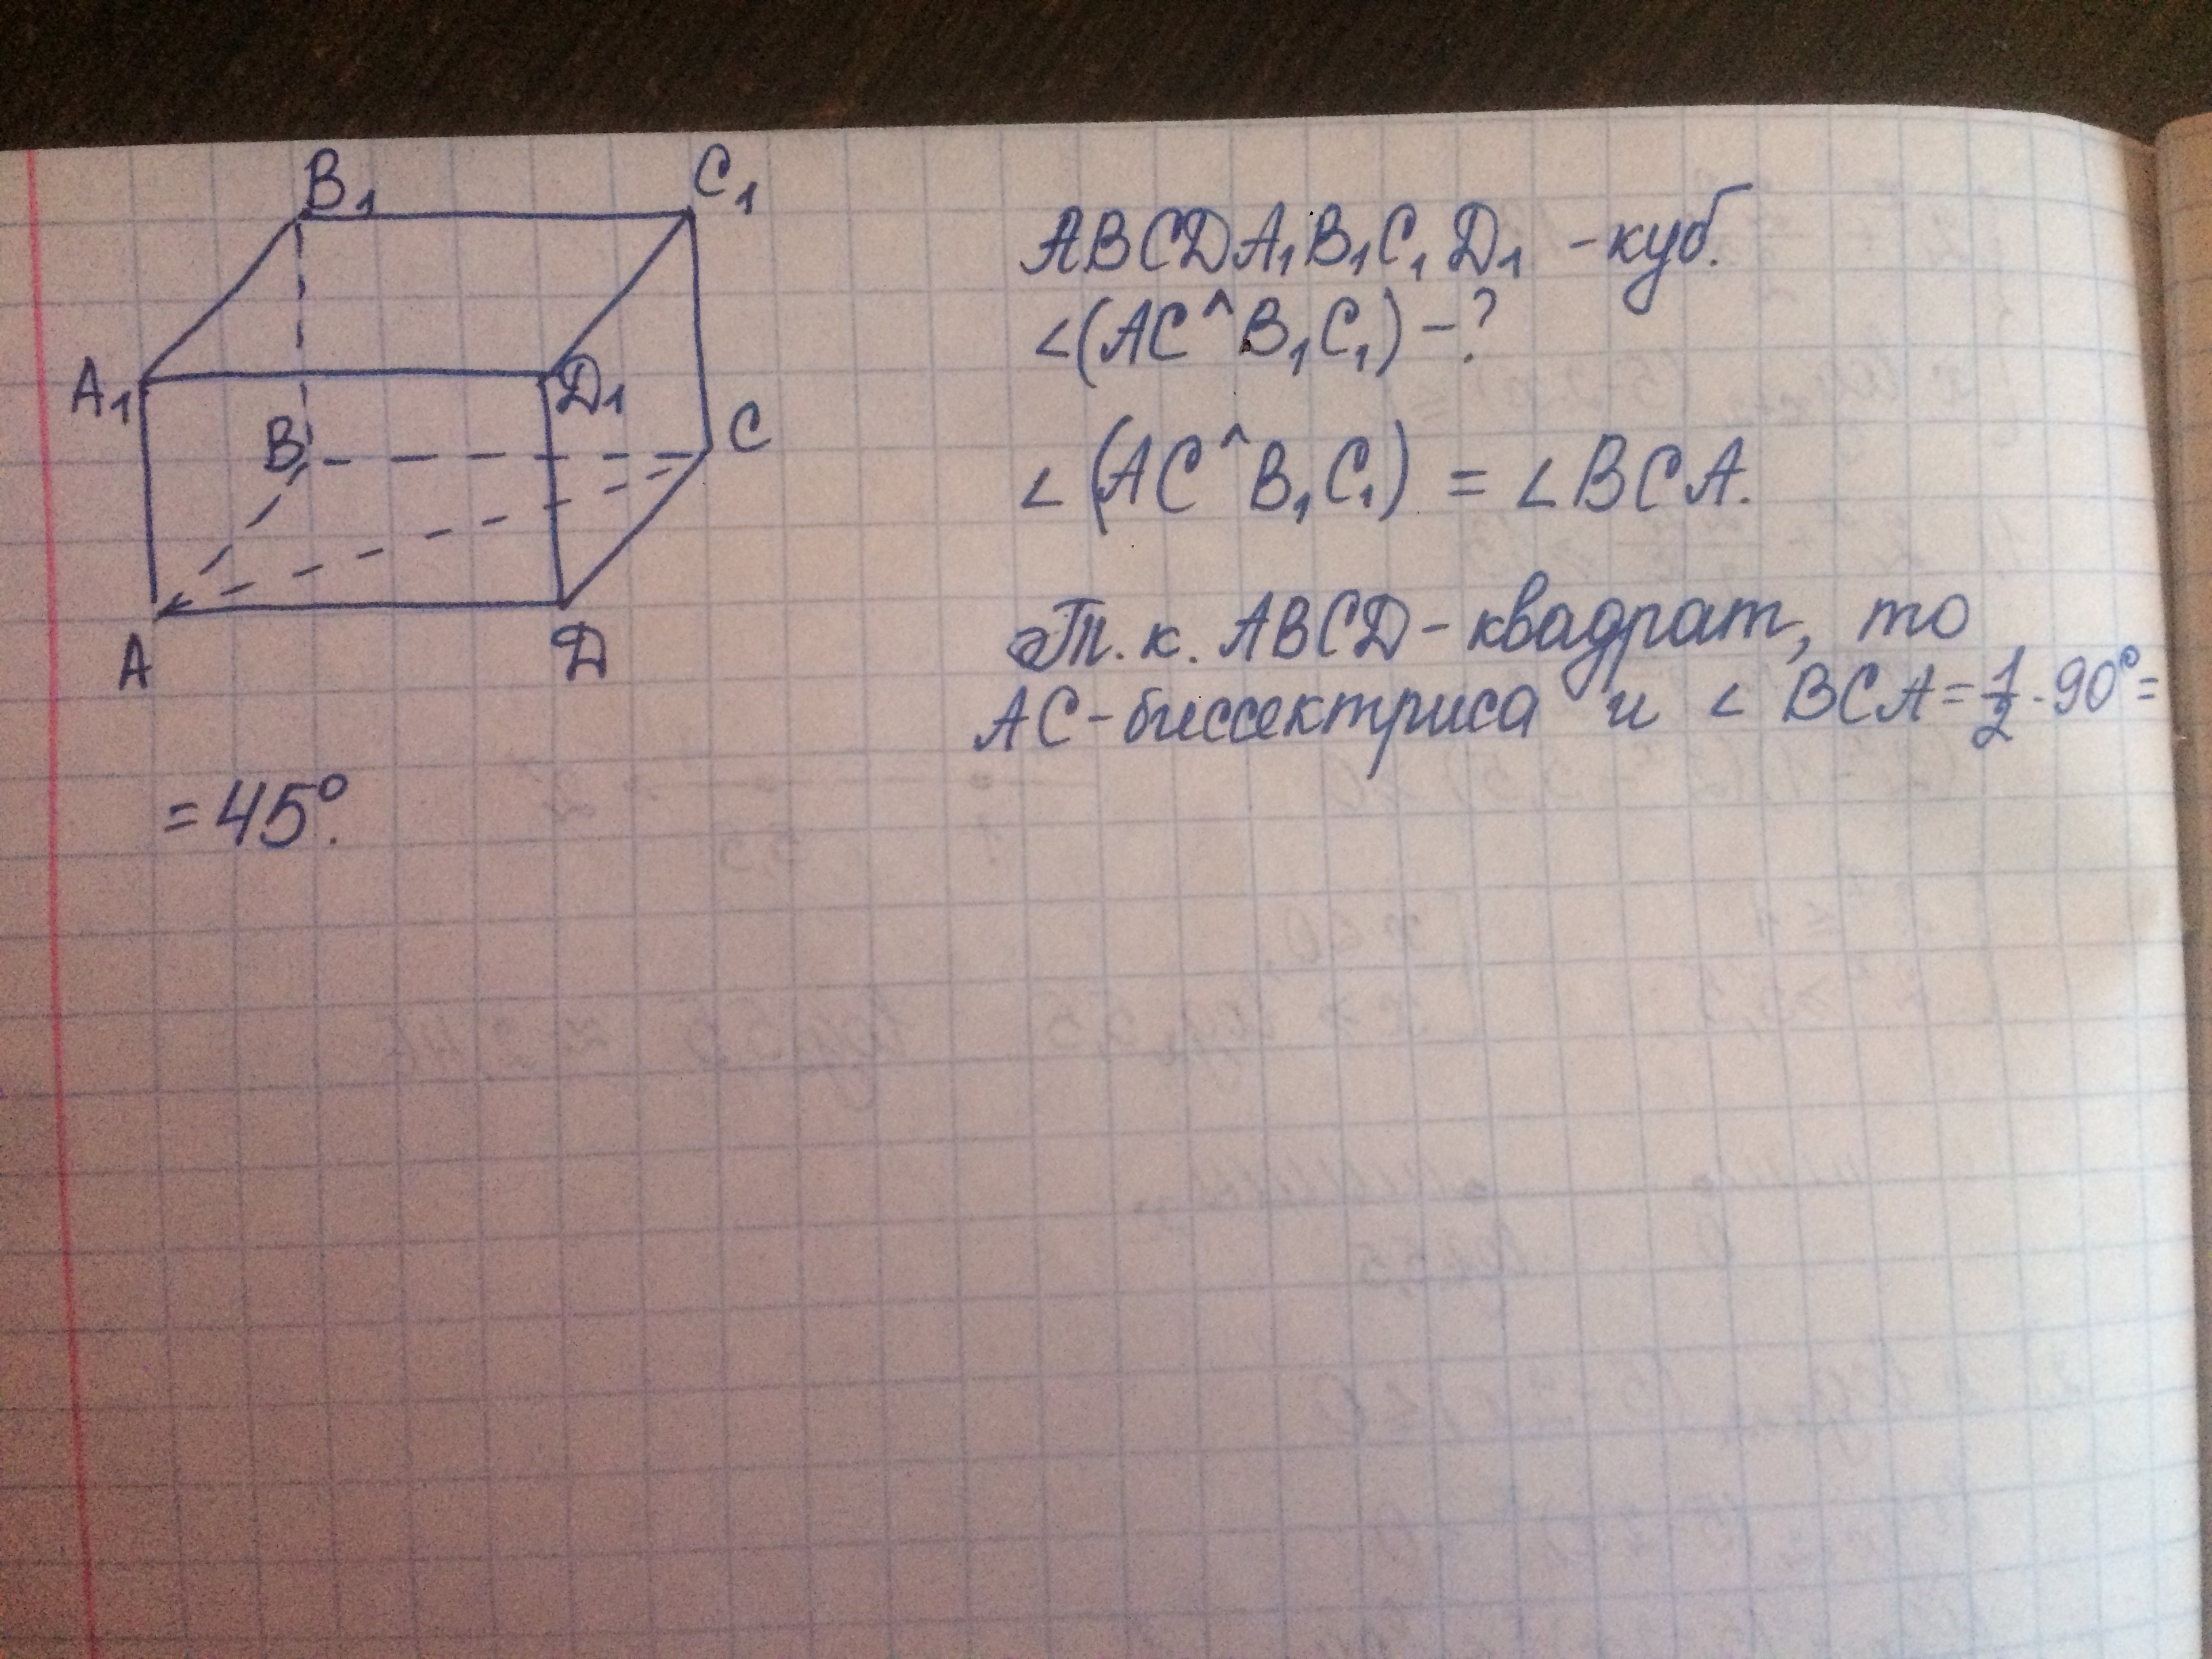 B₁
C₁
A₁
D₁
B
C
A
D
ABCDA₁B₁C₁D₁ - куб.
∠(AC^B₁C₁) - ?
∠(AC^B₁C₁) = ∠BCA.
Т. к. ABCD - квадрат, то
AC - биссектриса и ∠ BCA = 1/2 · 90° =
= 45°.